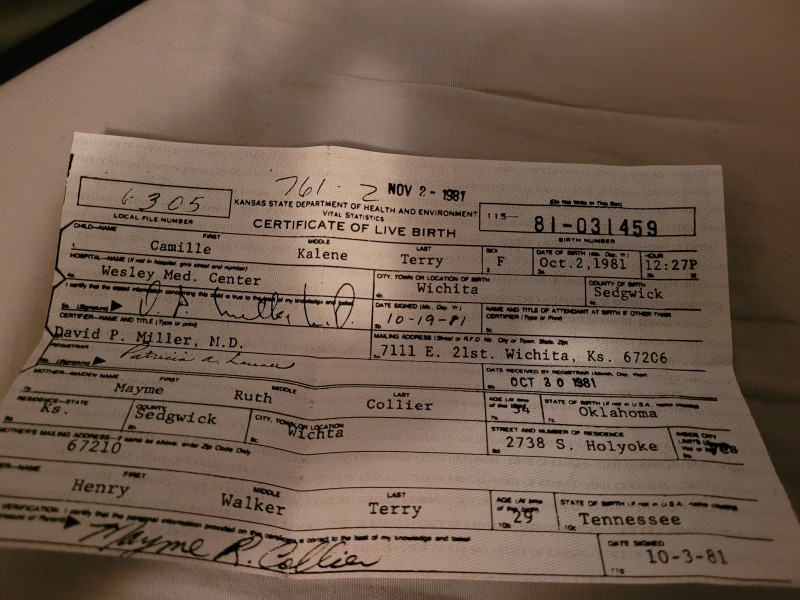 761-2 NOV 2 - 1981
6305
LOCAL FILE NUMBER
KANSAS STATE DEPARTMENT OF HEALTH AND ENVIRONMENT
VITAL STATISTICS
CERTIFICATE OF LIVE BIRTH
(Do Not Write In This Box)
115— 81-031459
BIRTH NUMBER
CHILD—NAME FIRST MIDDLE LAST SEX DATE OF BIRTH (Mo., Day, Yr.) HOUR
1. Camille Kalene Terry 2 F 3a Oct.2,1981 12:27P
HOSPITAL—NAME (If not in hospital, give street and number) CITY, TOWN OR LOCATION OF BIRTH COUNTY OF BIRTH
Wesley Med. Center 4b Wichita 4c Sedgwick
I certify that the stated information concerning this child is true to the best of my knowledge and belief.
5a (Signature)
DATE SIGNED (Mo., Day, Yr.) NAME AND TITLE OF ATTENDANT AT BIRTH IF OTHER THAN CERTIFIER (Type or Print)
5b 10-19-81 5c
CERTIFIER—NAME AND TITLE (Type or print) MAILING ADDRESS (Street or R.F.D. No., City or Town, State, Zip)
David P. Miller, M.D. 7111 E. 21st. Wichita, Ks. 67206
REGISTRAR DATE RECEIVED BY REGISTRAR (Month, Day, Year)
(Signature) OCT 30 1981
MOTHER—MAIDEN NAME FIRST MIDDLE LAST AGE (At time of this birth) STATE OF BIRTH (If not in U.S.A., name country)
7a Mayme Ruth Collier 7c Oklahoma
RESIDENCE—STATE COUNTY CITY, TOWN OR LOCATION STREET AND NUMBER OF RESIDENCE INSIDE CITY LIMITS
Ks. 8b Sedgwick 8c Wichta 8d 2738 S. Holyoke Yes
MOTHER'S MAILING ADDRESS—If same as above, enter Zip Code Only
67210
ER—NAME FIRST MIDDLE LAST AGE (At time of this birth) STATE OF BIRTH (If not in U.S.A., name country)
Henry Walker Terry 10b 29 10c Tennessee
VERIFICATION I certify that the personal information provided on this certificate is correct to the best of my knowledge and belief.
Mayme R. Collier
DATE SIGNED
11b 10-3-81